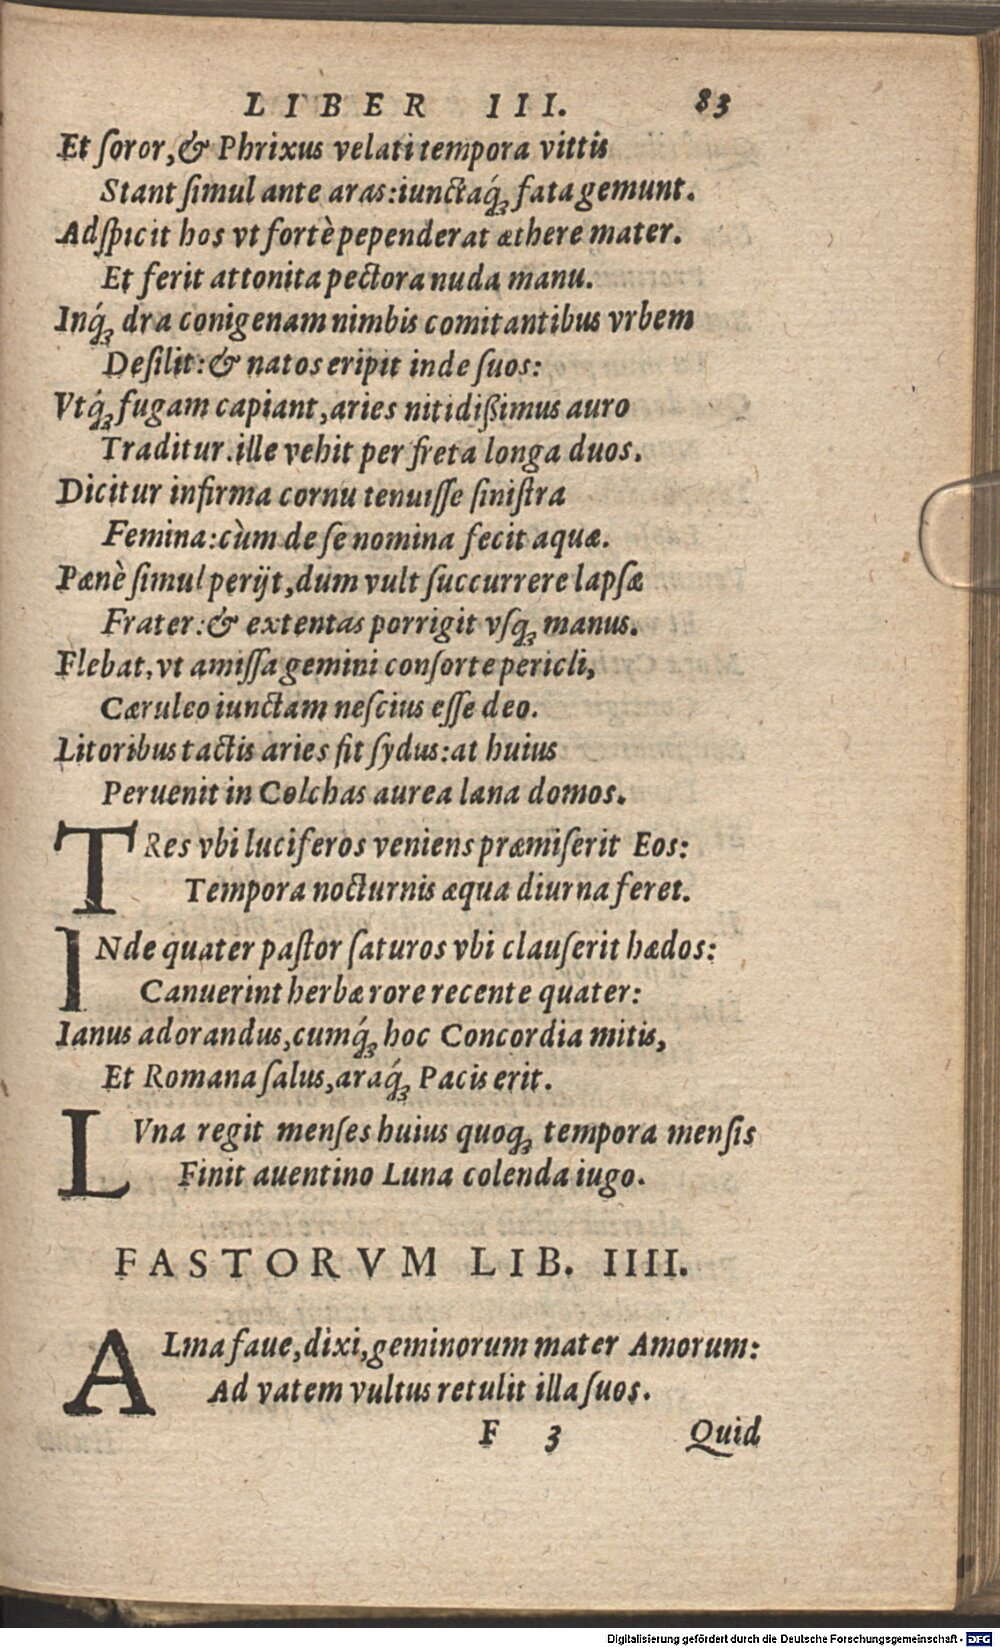 LIBER III. 83
Et ſoror, & Phrixus velati tempora vittis
Stant ſimul ante aras: iunctaq́; fata gemunt.
Adſpicit hos vt fortè pependerat æthere mater.
Et ferit attonita pectora nuda manu.
Inq́; dra conigenam nimbis comitantibus vrbem
Deſilit: & natos eripit inde ſuos:
Vtq́; fugam capiant, aries nitidißimus auro
Traditur. ille vehit per freta longa duos.
Dicitur infirma cornu tenuiſſe ſiniſtra
Femina: cùm de ſe nomina fecit aquæ.
Pænè ſimul perijt, dum vult ſuccurrere lapſæ
Frater: & extentas porrigit vſq; manus.
Flebat, vt amiſſa gemini conſorte pericli,
Cæruleo iunctam neſcius eſſe deo.
Litoribus tactis aries fit ſydus: at huius
Peruenit in Colchas aurea lana domos.
TRes vbi luciferos veniens præmiſerit Eos:
Tempora nocturnis æqua diurna feret.
INde quater paſtor ſaturos vbi clauſerit hædos:
Canuerint herbæ rore recente quater:
Ianus adorandus, cumq́; hoc Concordia mitis,
Et Romana ſalus, araq́; Pacis erit.
LVna regit menſes huius quoq; tempora menſis
Finit auentino Luna colenda iugo.
FASTORVM LIB. IIII.
ALma faue, dixi, geminorum mater Amorum:
Ad vatem vultus retulit illa ſuos.
F 3 Quid
Digitalisierung gefördert durch die Deutsche Forschungsgemeinschaft - DFG